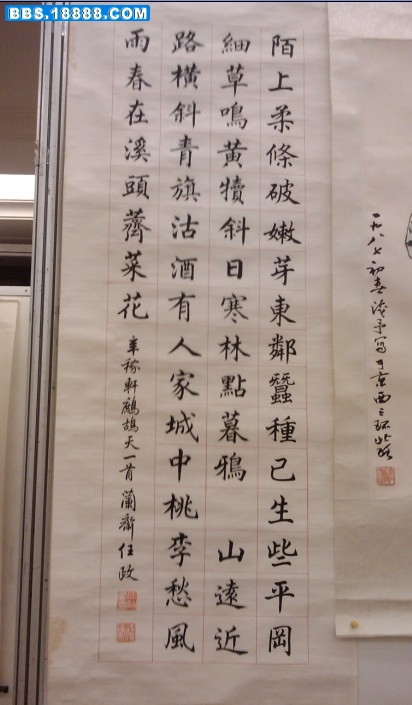 BBS.18888.COM
一九八七初春寫于京西三环北路
陌上柔條破嫩芽東鄰蠶種已生些平岡
細草鳴黃犢斜日寒林點暮鴉 山遠近
路橫斜青旗沽酒有人家城中桃李愁風
雨春在溪頭薺菜花 辛稼軒鷓鴣天一首 蘭齋任政